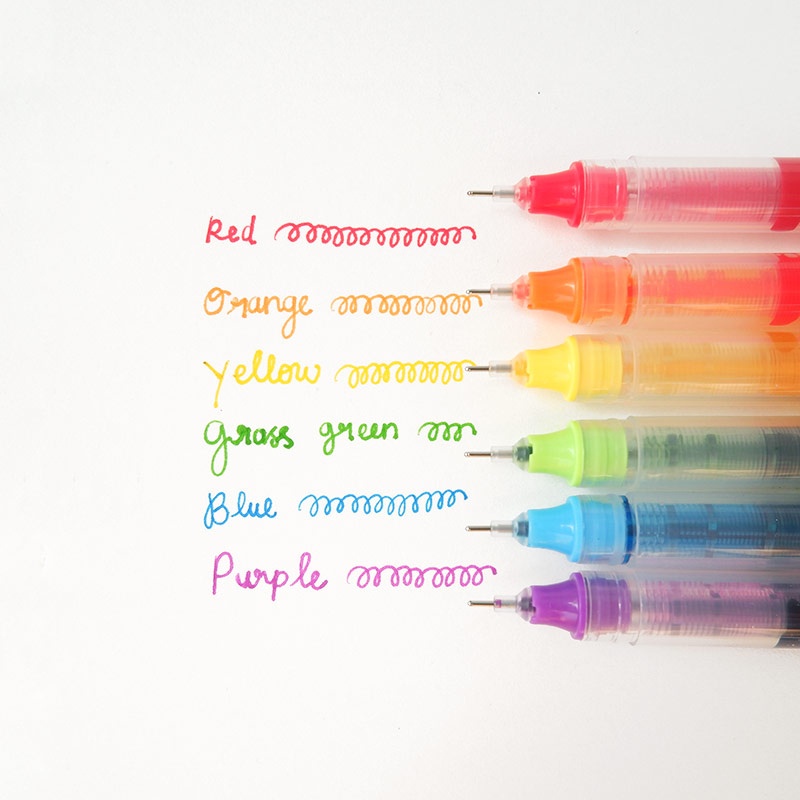 Red
Orange
Yellow
Grass green
Blue
Purple